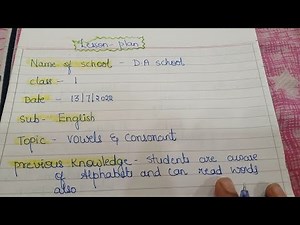 Lesson - plan
Name of school - D.A school
class - 1
Date - 13/7/2022
Sub - English
Topic - Vowels & Consonant
previous knowledge - students are aware
of Alphabets and can read words
also